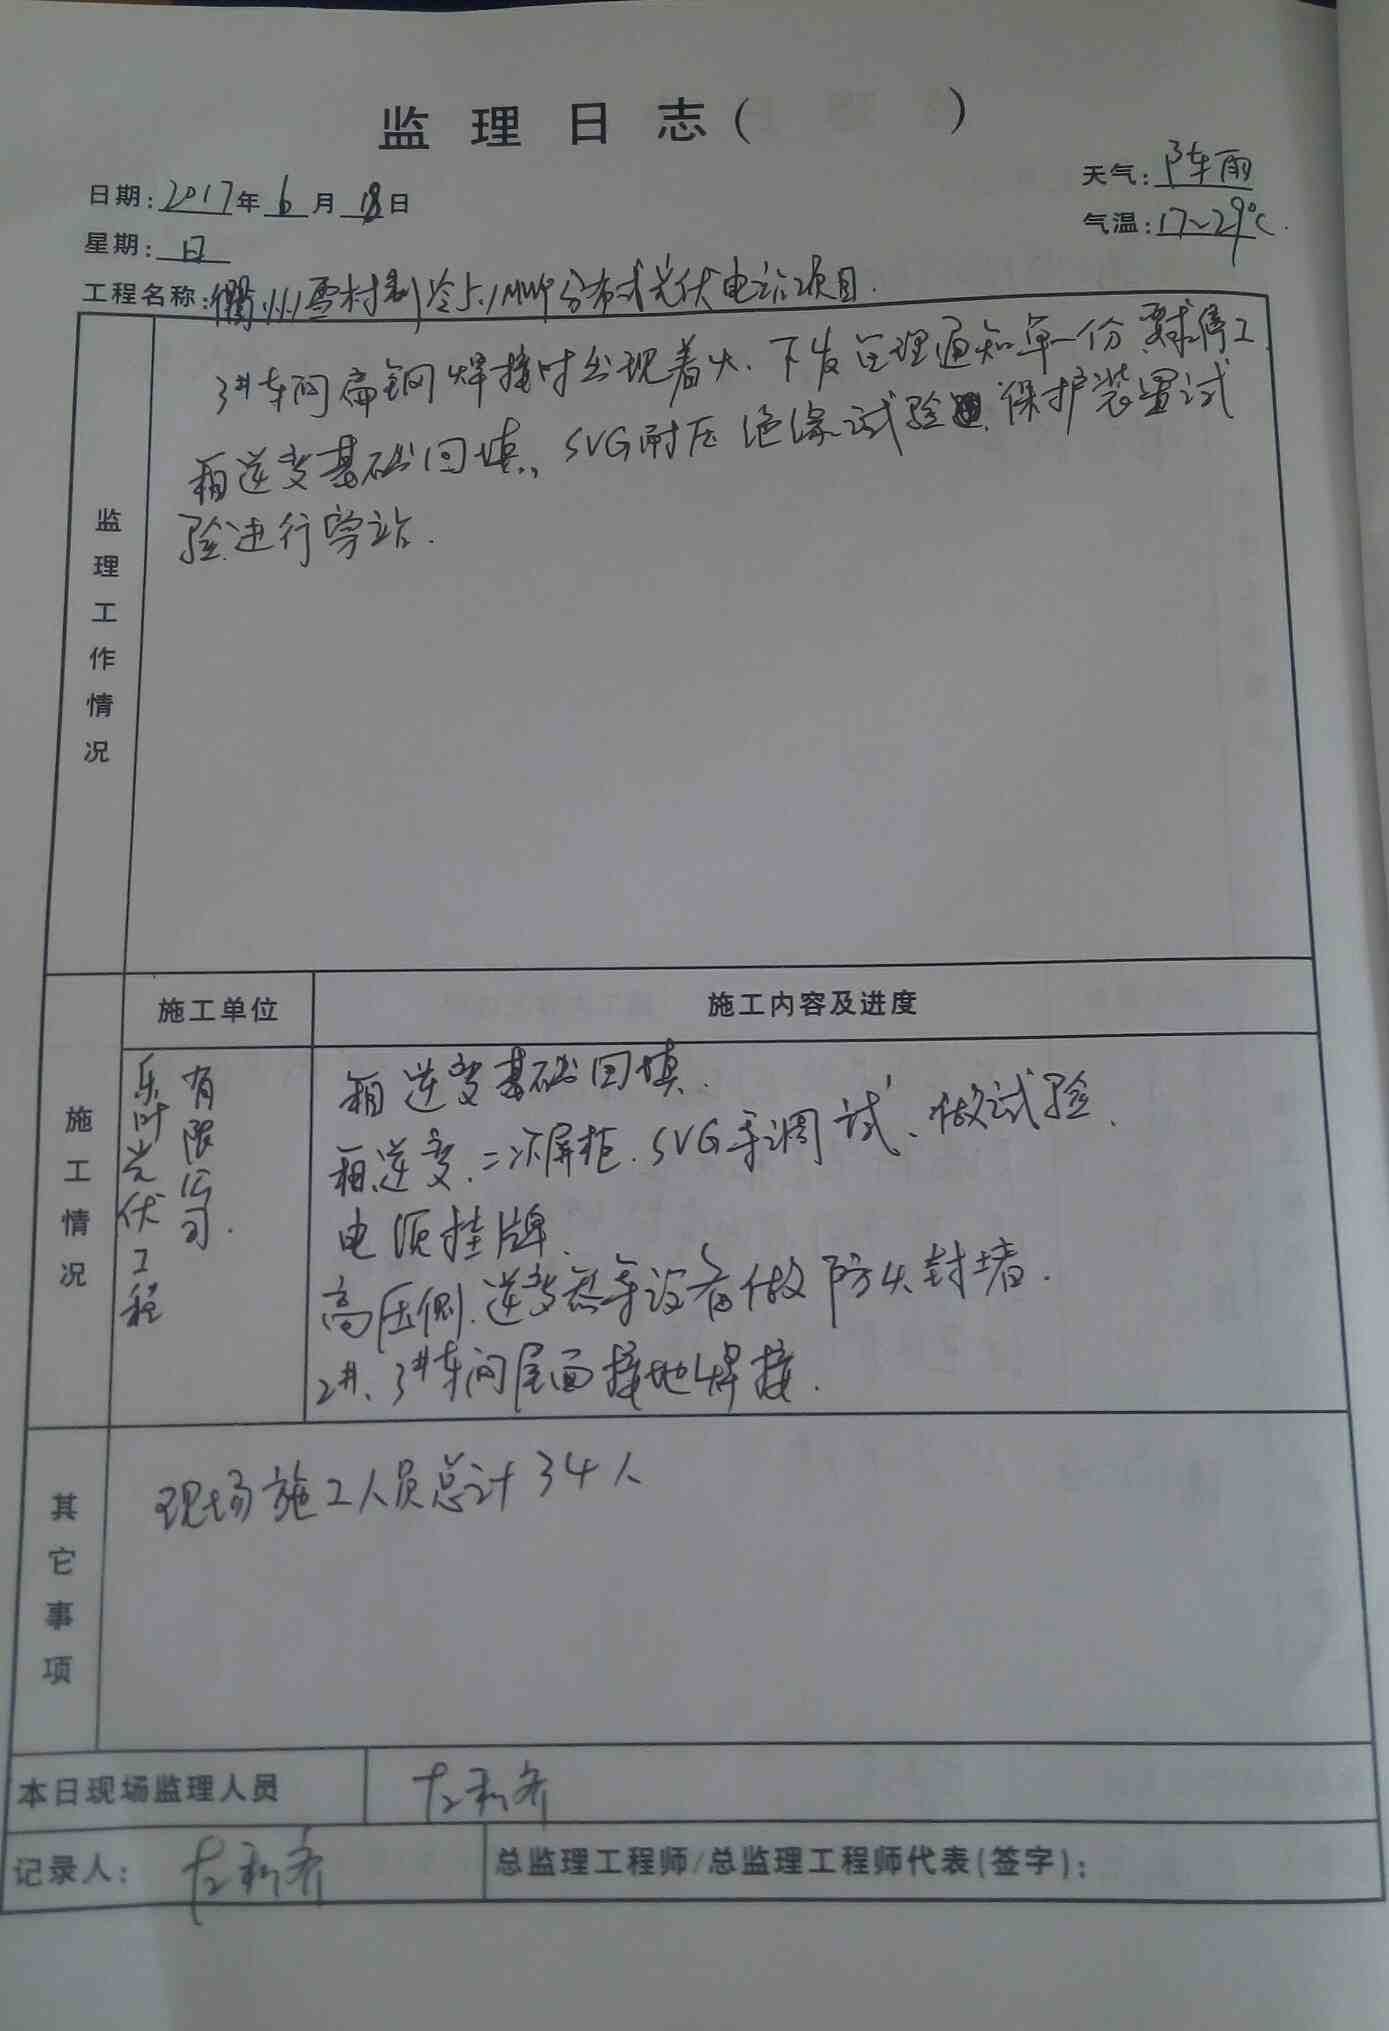 监理日志( )
日期:2017年6月18日
天气:阵雨
星期:日
气温:17~29℃.
工程名称:衢州雪村制冷5.1MWP分布式光伏电站项目.
监理工作情况
3#车间扁钢焊接时出现着火.下发监理通知单一份 要求停工.
箱逆变基础回填.、SVG耐压绝缘试验 保护装置试
验进行旁站.
施工情况
施工单位
施工内容及进度
乐叶光伏工程
有限公司.
箱逆变基础回填.
箱逆变.二次屏柜.SVG等调试、做试验.
电源挂牌.
高压侧.逆变器等设备做防火封堵.
2#、3#车间屋面接地焊接.
其它事项
现场施工人员总计34人
本日现场监理人员
记录人:
总监理工程师/总监理工程师代表(签字):